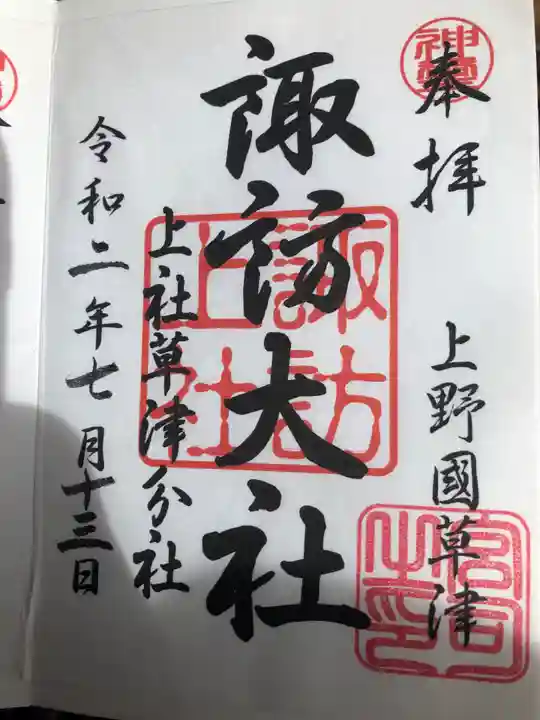 奉拝
上野國草津
諏訪大社
上社草津分社
令和二年七月十三日
諏訪
上社